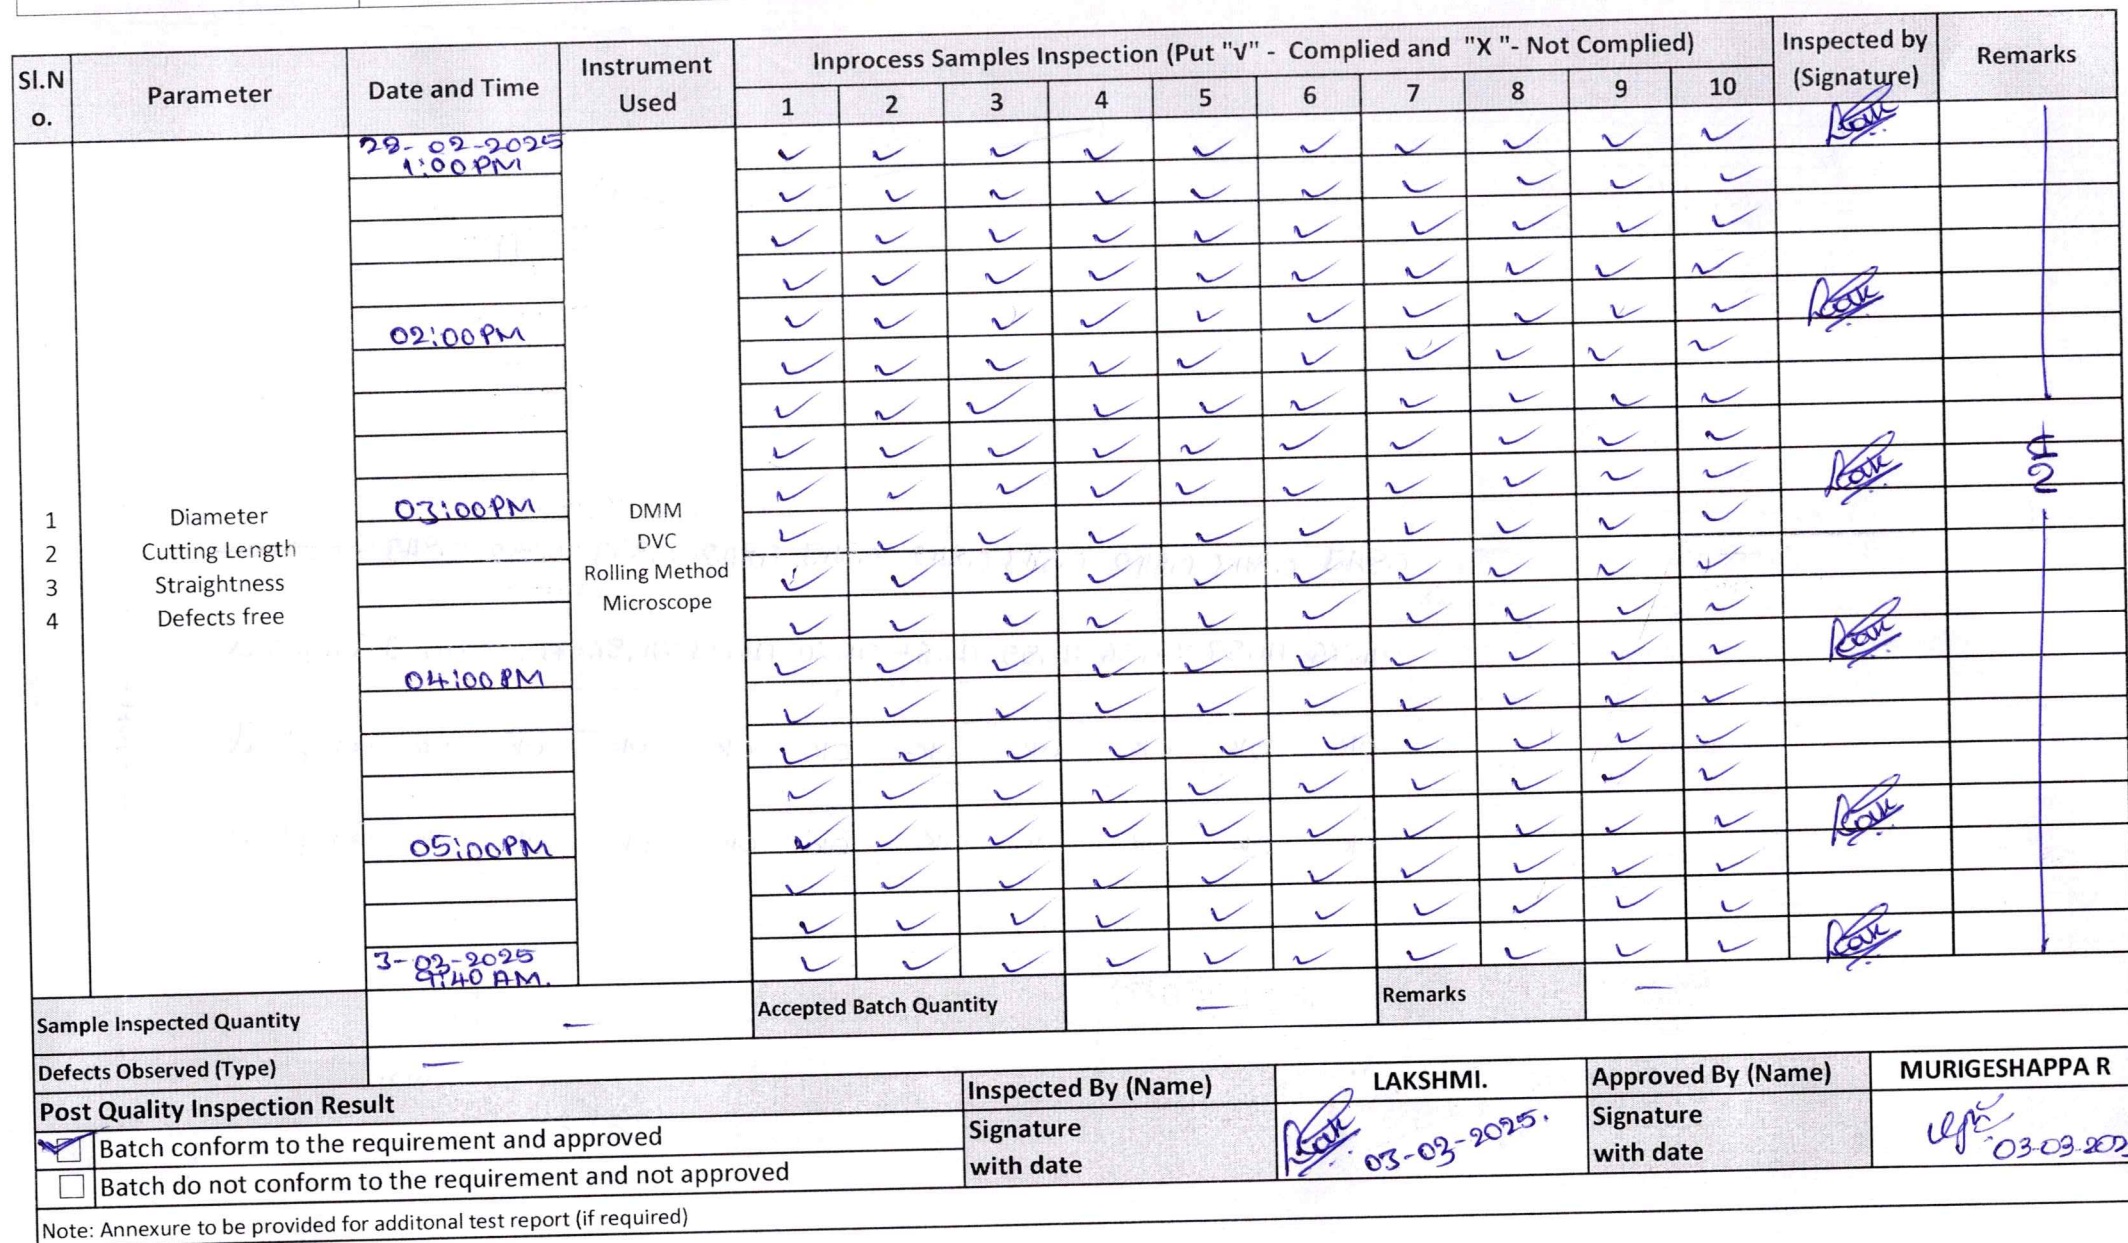 Sl.N
o.
Parameter
Date and Time
Instrument
Used
Inprocess Samples Inspection (Put "V" - Complied and "X "- Not Complied)
Inspected by
(Signature)
Remarks
1 2 3 4 5 6 7 8 9 10
28-02-2025
1:00PM
✓ ✓ ✓ ✓ ✓ ✓ ✓ ✓ ✓ ✓
✓ ✓ ✓ ✓ ✓ ✓ ✓ ✓ ✓ ✓
✓ ✓ ✓ ✓ ✓ ✓ ✓ ✓ ✓ ✓
✓ ✓ ✓ ✓ ✓ ✓ ✓ ✓ ✓ ✓
02:00PM ✓ ✓ ✓ ✓ ✓ ✓ ✓ ✓ ✓ ✓
✓ ✓ ✓ ✓ ✓ ✓ ✓ ✓ ✓ ✓
✓ ✓ ✓ ✓ ✓ ✓ ✓ ✓ ✓ ✓
✓ ✓ ✓ ✓ ✓ ✓ ✓ ✓ ✓ ✓
03:00PM ✓ ✓ ✓ ✓ ✓ ✓ ✓ ✓ ✓ ✓
1 Diameter DMM ✓ ✓ ✓ ✓ ✓ ✓ ✓ ✓ ✓ ✓
2 Cutting Length DVC
3 Straightness Rolling Method ✓ ✓ ✓ ✓ ✓ ✓ ✓ ✓ ✓ ✓
4 Defects free Microscope ✓ ✓ ✓ ✓ ✓ ✓ ✓ ✓ ✓ ✓
04:00PM ✓ ✓ ✓ ✓ ✓ ✓ ✓ ✓ ✓ ✓
✓ ✓ ✓ ✓ ✓ ✓ ✓ ✓ ✓ ✓
✓ ✓ ✓ ✓ ✓ ✓ ✓ ✓ ✓ ✓
✓ ✓ ✓ ✓ ✓ ✓ ✓ ✓ ✓ ✓
05:00PM ✓ ✓ ✓ ✓ ✓ ✓ ✓ ✓ ✓ ✓
✓ ✓ ✓ ✓ ✓ ✓ ✓ ✓ ✓ ✓
✓ ✓ ✓ ✓ ✓ ✓ ✓ ✓ ✓ ✓
3-03-2025
9:40 AM.
✓ ✓ ✓ ✓ ✓ ✓ ✓ ✓ ✓ ✓
Sample Inspected Quantity — Accepted Batch Quantity — Remarks —
Defects Observed (Type) —
Post Quality Inspection Result
✓ Batch conform to the requirement and approved
Batch do not conform to the requirement and not approved
Inspected By (Name) LAKSHMI.
Signature
with date
03-03-2025.
Approved By (Name) MURIGESHAPPA R
Signature
with date
03-03-202
Note: Annexure to be provided for additonal test report (if required)